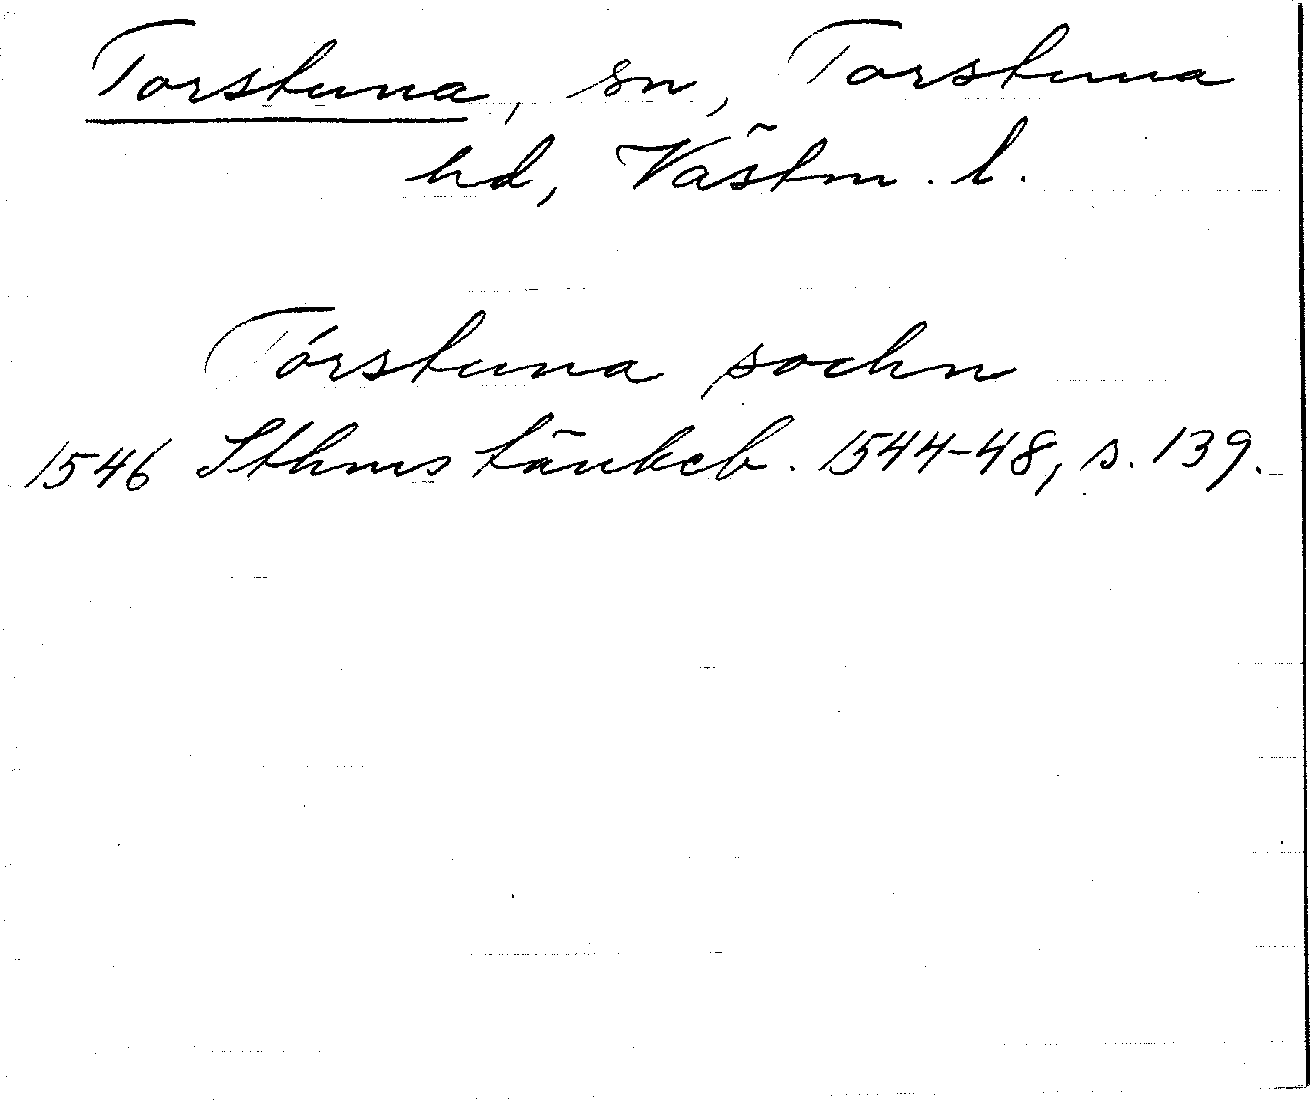 Torstuna, sn, Torstuna
hd, Västm. l.
Tórstuna sochn
1546 Sthms tänkeb. 1544-48, s. 139.